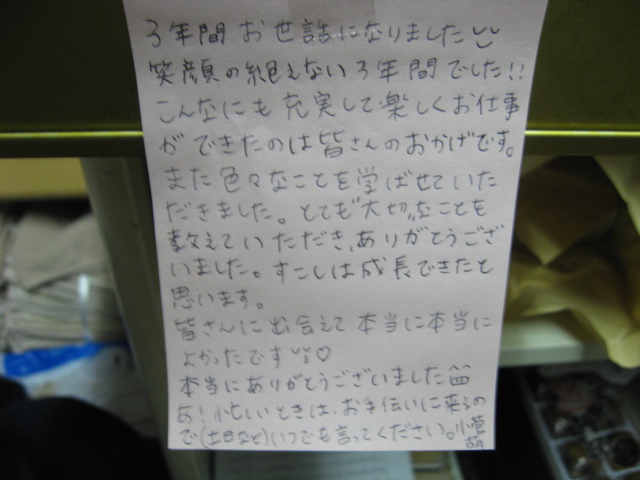 3年間お世話になりました
笑顔の絶えない3年間でした!!
こんなにも充実して楽しくお仕事
ができたのは皆さんのおかげです。
また色々なことを学ばせていた
だきました。とても"大切"なことを
教えていただき、ありがとうござ
いました。すこしは成長できたと
思います。
皆さんに出会えて本当に本当に
よかったです♡
本当にありがとうございました
あ!忙しいときは、お手伝いに来るの
で(土日など)いつでも言ってください。小菅
萌